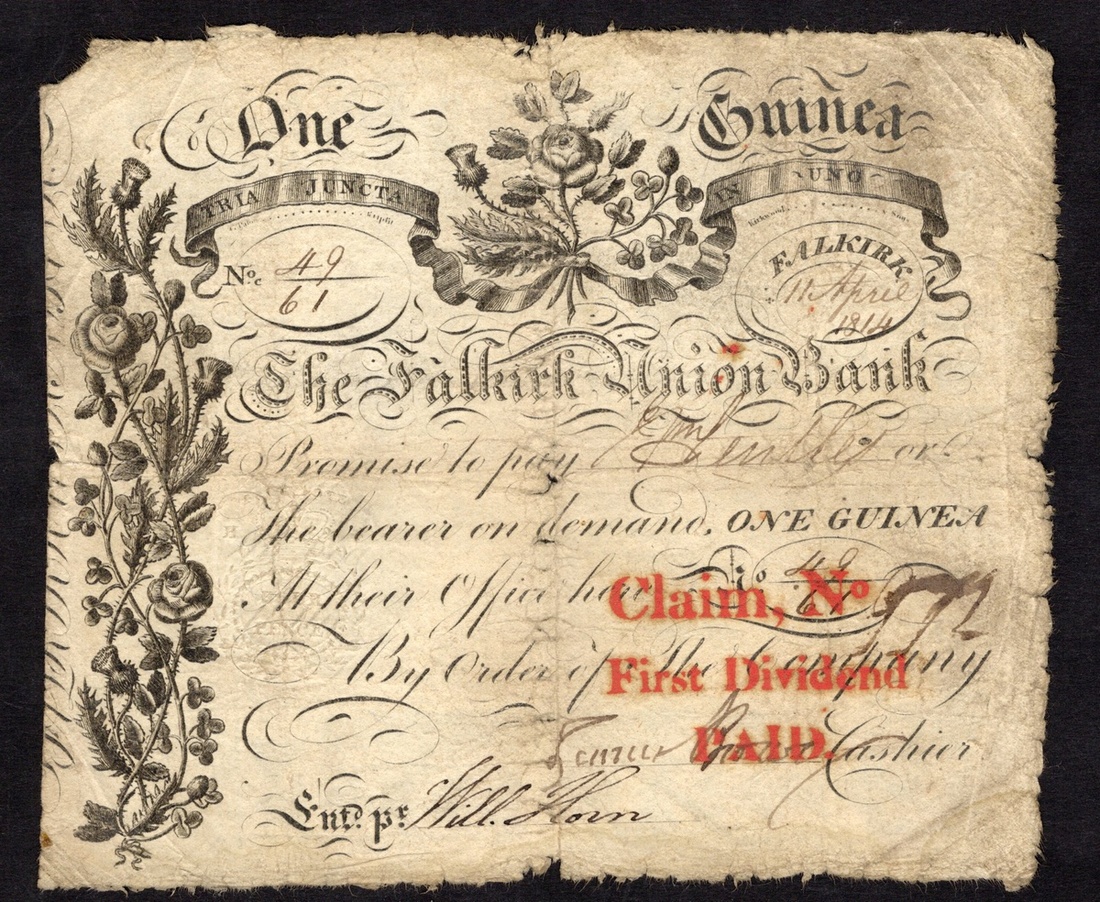 One Guinea
TRIA JUNCTA IN UNO
Kirkwood
No. 49/61
FALKIRK
11 April
1814
The Falkirk Union Bank
Promise to pay or
The bearer on demand, ONE GUINEA
At their Office here No 49/61
Claim, No
By Order of The Company
First Dividend
PAID.
Cashier
Entd. pr. Will. Horn